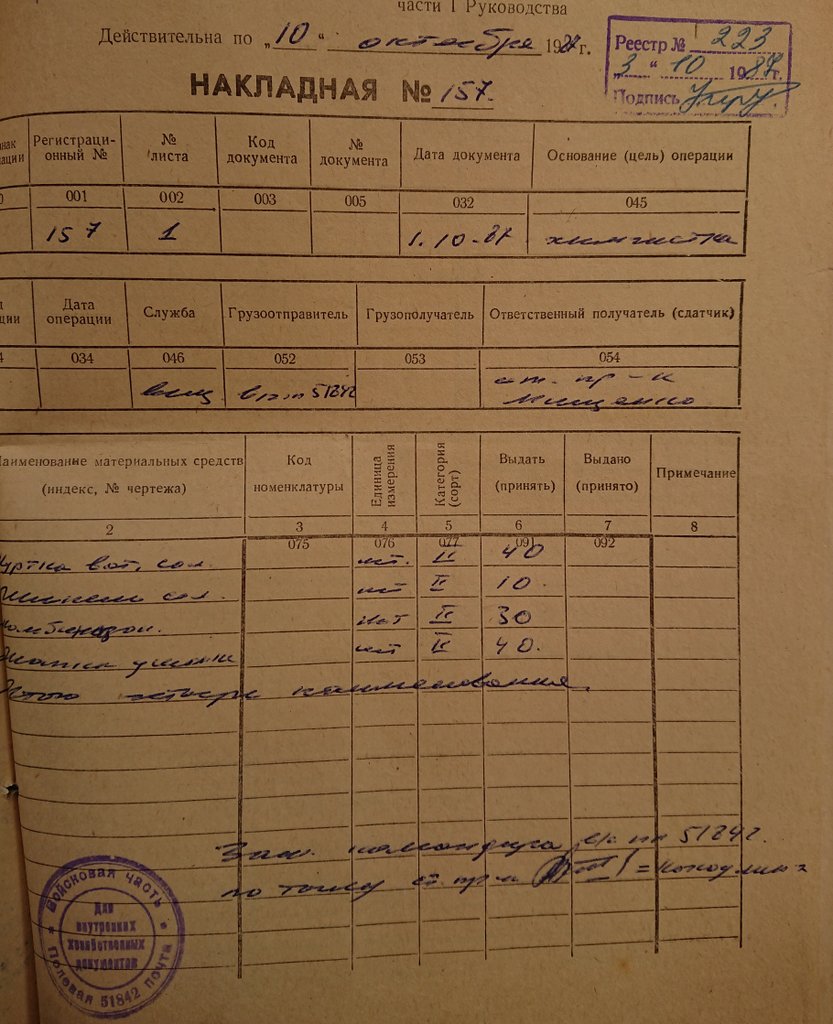 части I Руководства
Действительна по „10“ октября 1987 г.
Реестр № 223
„3“ 10 1987 г.
Подпись
НАКЛАДНАЯ № 157.
Регистраци-онный № № листа Код документа № документа Дата документа Основание (цель) операции
001 002 003 005 032 045
157 1 1.10.87 химчистка
Дата операции Служба Грузоотправитель Грузополучатель Ответственный получатель (сдатчик)
034 046 052 053 054
вещ
ст. пр-к
Мищенко
Наименование материальных средств (индекс, № чертежа) Код номенклатуры Единица измерения Категория (сорт) Выдать (принять) Выдано (принято) Примечание
2 3 4 5 6 7 8
075 076 077 091 092
куртка ват. сол. шт. II 40
шинель сол. шт II 10
комбинезон. шт II 30
шапка ушанка шт II 40.
Итого четыре наименования.
Зам. командира в/ч пп 51842.
по тылу ст. пр-к
Войсковая часть
Полевая почта 51842
Для внутренних хозяйственных документов